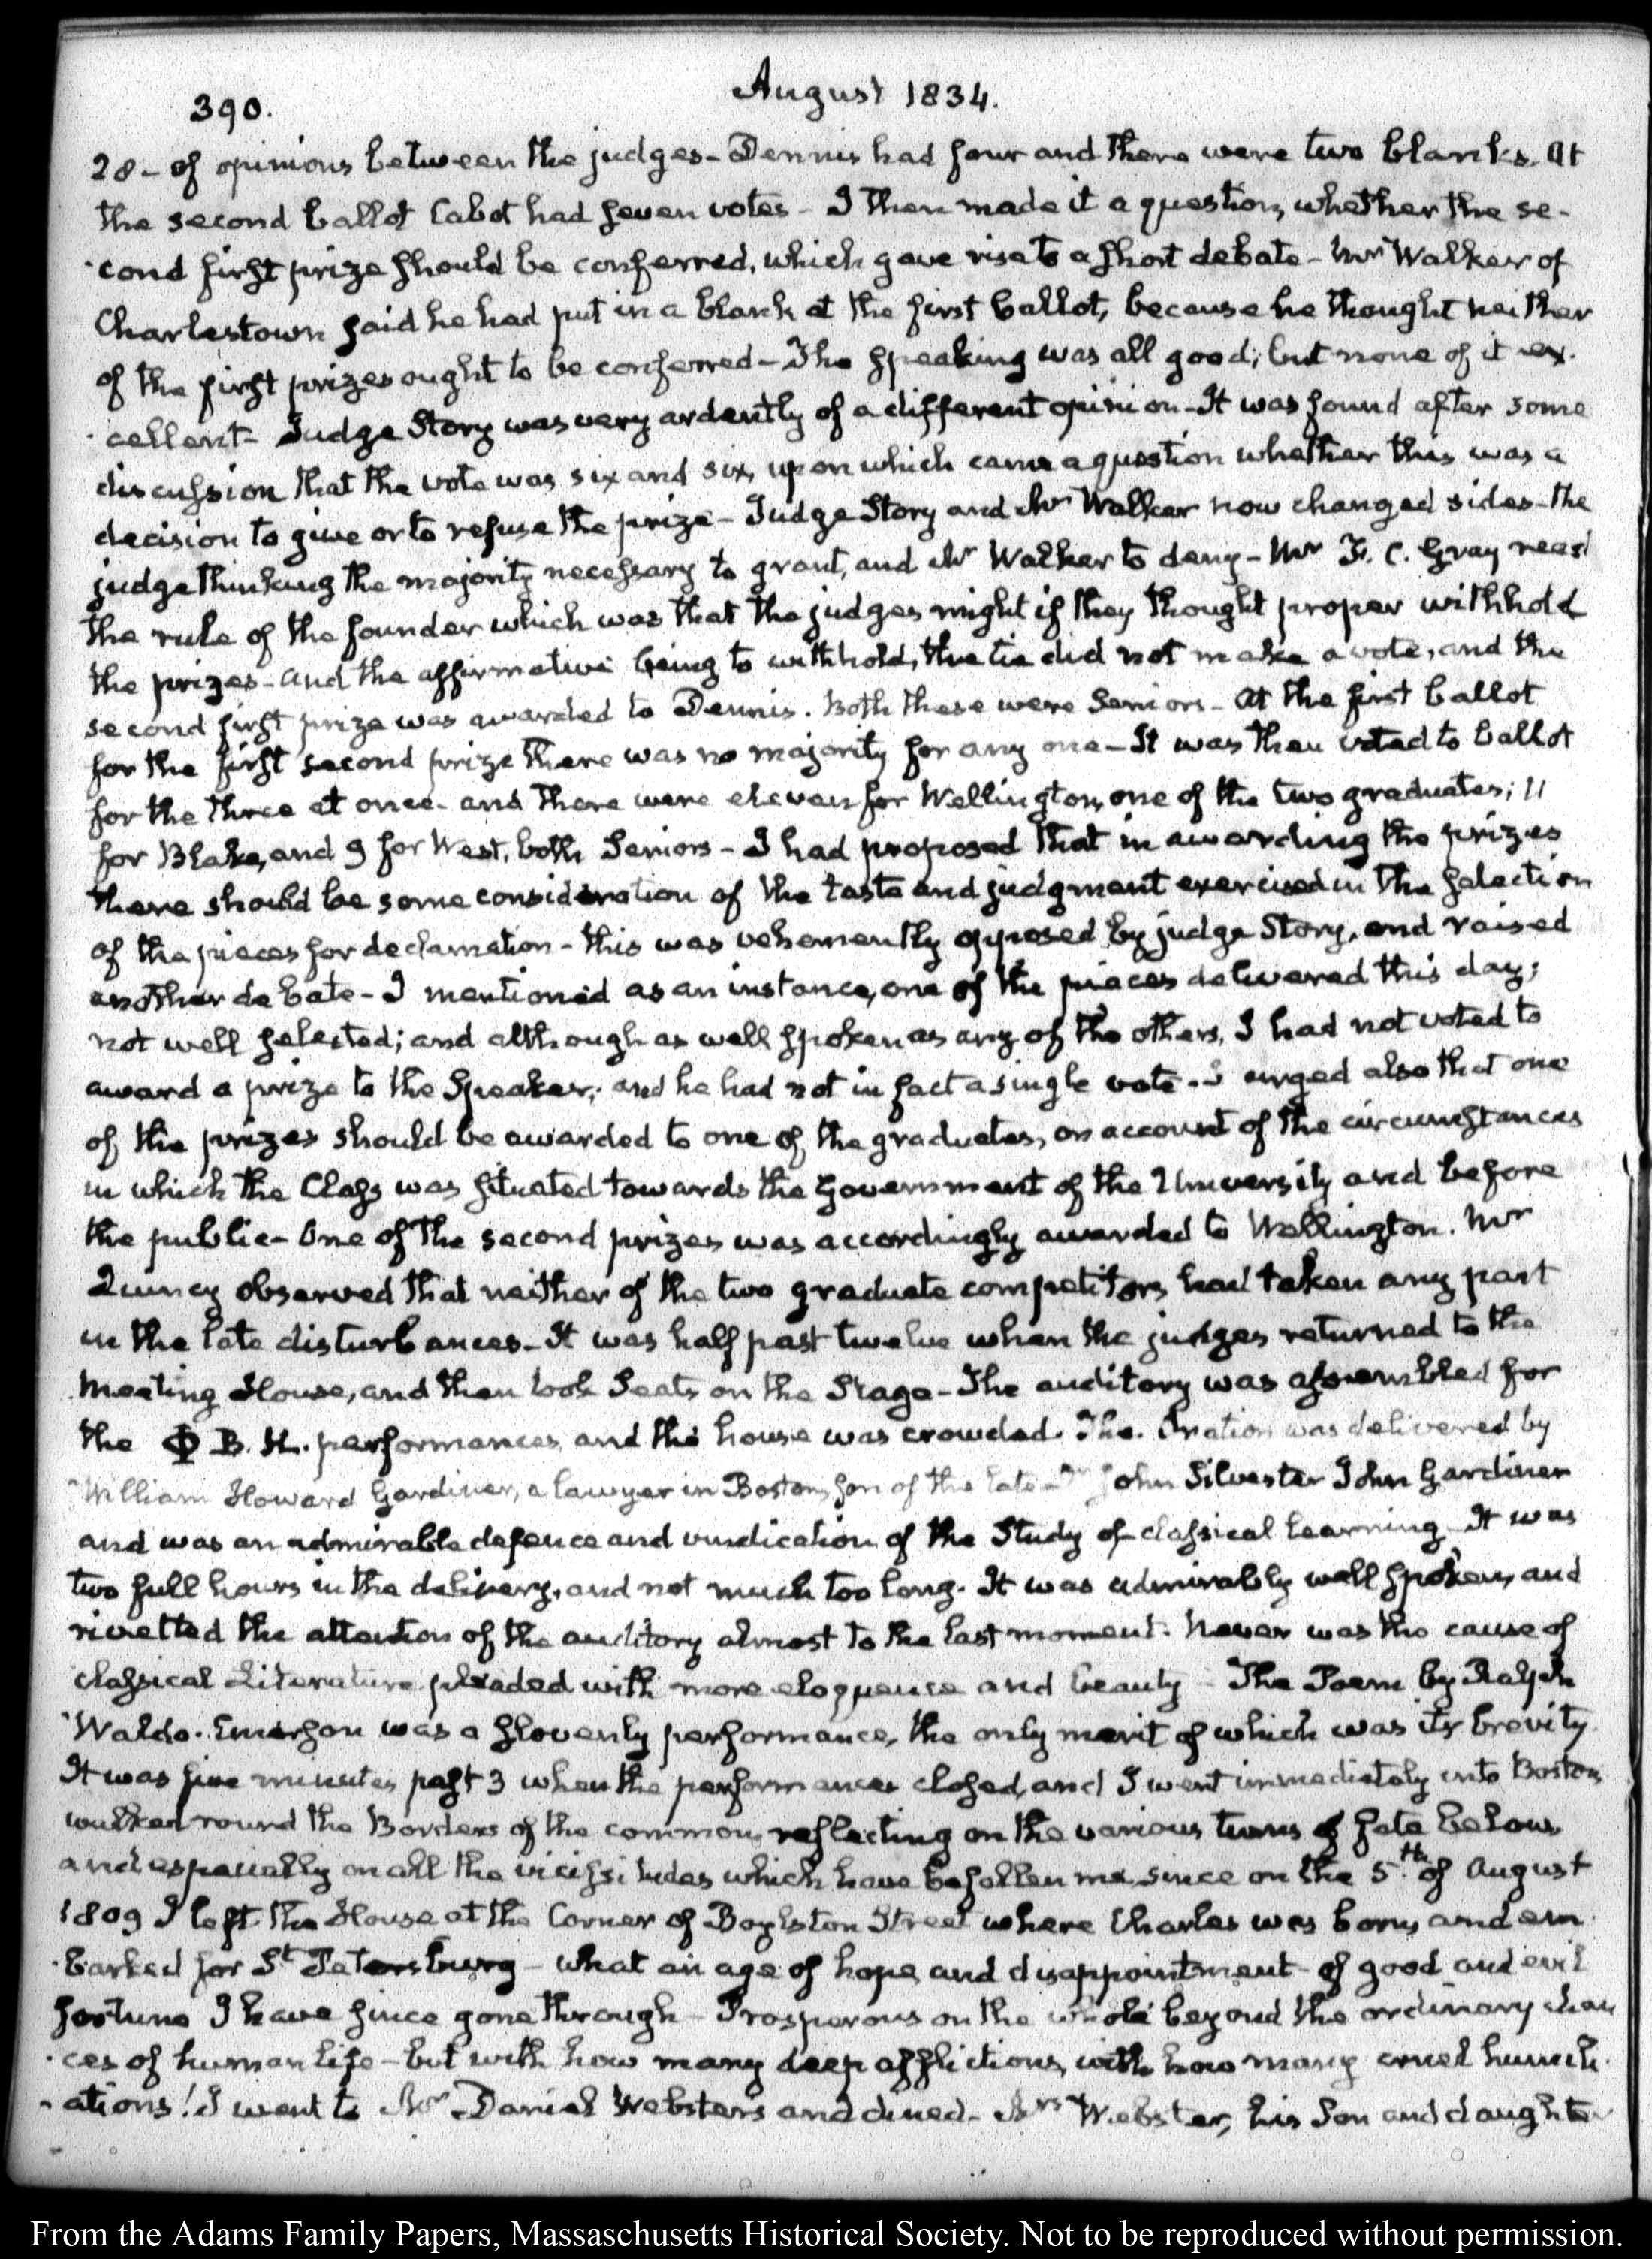 390.
August 1834.
28 - of opinions between the judges - Dennis had four and there were two blanks. At
the second ballot Cabot had seven votes - I then made it a question, whether the se-
-cond first prize should be conferred, which gave rise to a short debate - Mr Walker of
Charlestown said he had put in a blank at the first ballot, because he thought neither
of the first prizes ought to be conferred - The speaking was all good; but none of it ex-
-cellent - Judge Story was very ardently of a different opinion - It was found after some
discussion that the vote was six and six, upon which came a question whether this was a
decision to give or to refuse the prize - Judge Story and Mr Walker now changed sides - the
judge thinking the majority necessary to grant, and Mr Walker to deny - Mr F. C. Gray read
the rule of the founder which was that the judges might if they thought proper withhold
the prizes - and the affirmative being to withhold, the tie did not make a vote, and the
second first prize was awarded to Dennis. Both these were Seniors - At the first ballot
for the first second prize there was no majority for any one - It was then voted to ballot
for the three at once - and there were eleven for Wellington, one of the two graduates; 11
for Blake, and 9 for West, both Seniors - I had proposed that in awarding the prizes
there should be some consideration of the taste and judgment exercised in the selection
of the pieces for declamation - this was vehemently opposed by judge Story, and raised
another debate - I mentioned as an instance, one of the pieces delivered this day;
not well selected; and although as well spoken as any of the others, I had not voted to
award a prize to the Speaker; and he had not in fact a single vote. I urged also that one
of the prizes should be awarded to one of the graduates, on account of the circumstances
in which the Class was situated towards the Government of the University and before
the public - One of the second prizes was accordingly awarded to Wellington. Mr
Quincy observed that neither of the two graduate competitors had taken any part
in the late disturbances - It was half past twelve when the judges returned to the
Meeting House, and then took Seats on the Stage - The auditory was assembled for
the Φ B. K. performances, and the house was crowded. The Oration was delivered by
William Howard Gardiner, a lawyer in Boston, son of the late Dr John Silvester John Gardiner
and was an admirable defence and vindication of the Study of classical learning - It was
two full hours in the delivery, and not much too long. It was admirably well spoken, and
rivetted the attention of the auditory almost to the last moment. Never was the cause of
classical Literature pleaded with more eloquence and beauty - The Poem by Ralph
Waldo Emerson was a slovenly performance, the only merit of which was its brevity.
It was five minutes past 3 when the performances closed, and I went immediately into Boston
walked round the Borders of the common, reflecting on the various turns of fate below,
and especially on all the vicissitudes which have befallen me since on the 5th of August
1809 I left the House at the Corner of Boylston Street where Charles was born, and em-
-barked for St Petersburg - what an age of hope and disappointment - of good and evil
fortune I have since gone through - Prosperous on the whole beyond the ordinary chan
-ces of human life - but with how many deep afflictions, with how many cruel humili-
-ations! I went to Mr Daniel Webster's and dined - Mrs Webster, his Son and daughter
From the Adams Family Papers, Massaschusetts Historical Society. Not to be reproduced without permission.